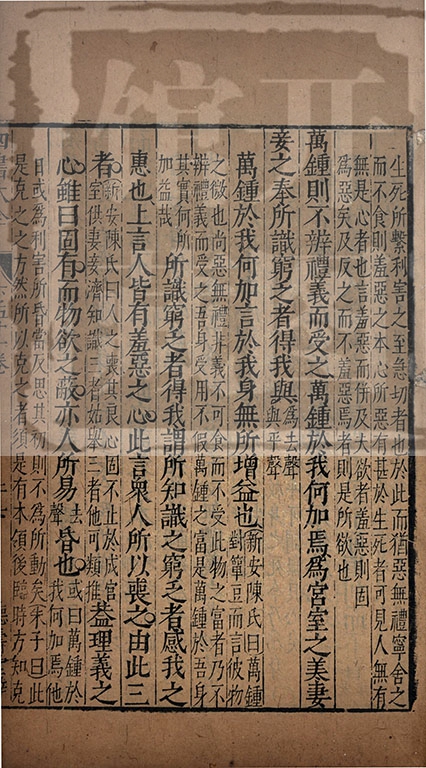 生死所繫利害之至急切者也於此而猶惡無禮寧舍之
而不食則羞惡之本心所惡有甚於生死者可見人無有
無是心者也言羞惡而併及大欲者羞惡則固
為惡矣及反之而不羞惡焉者則是所欲也
萬鍾則不辨禮義而受之萬鍾於我何加焉為宮室之美妻
妾之奉所識窮乏者得我與為去聲與平聲
萬鍾於我何加言於我身無所增益也新安陳氏曰萬鍾對簞豆而言彼物
之微也尚惡無禮非義不可食而不受此物之富者乃不
辨禮義而受之吾身受用不假萬鍾之富是萬鍾於吾身
其實何所加益哉所識窮乏者得我謂所知識之窮乏者感我之
惠也上言人皆有羞惡之心此言衆人所以喪之由此三
者新安陳氏曰人之喪其良心固不止於成宮室供妻妾濟知識三者姑舉三者他可類推蓋理義之
心雖曰固有而物欲之蔽亦人所易去聲昏也或曰萬鍾於我何加焉他
日或為利害所昏當反思其初則不為所動矣朱子曰此
是克之之方然所以克之者須是有本領後臨時方知克
四書大全